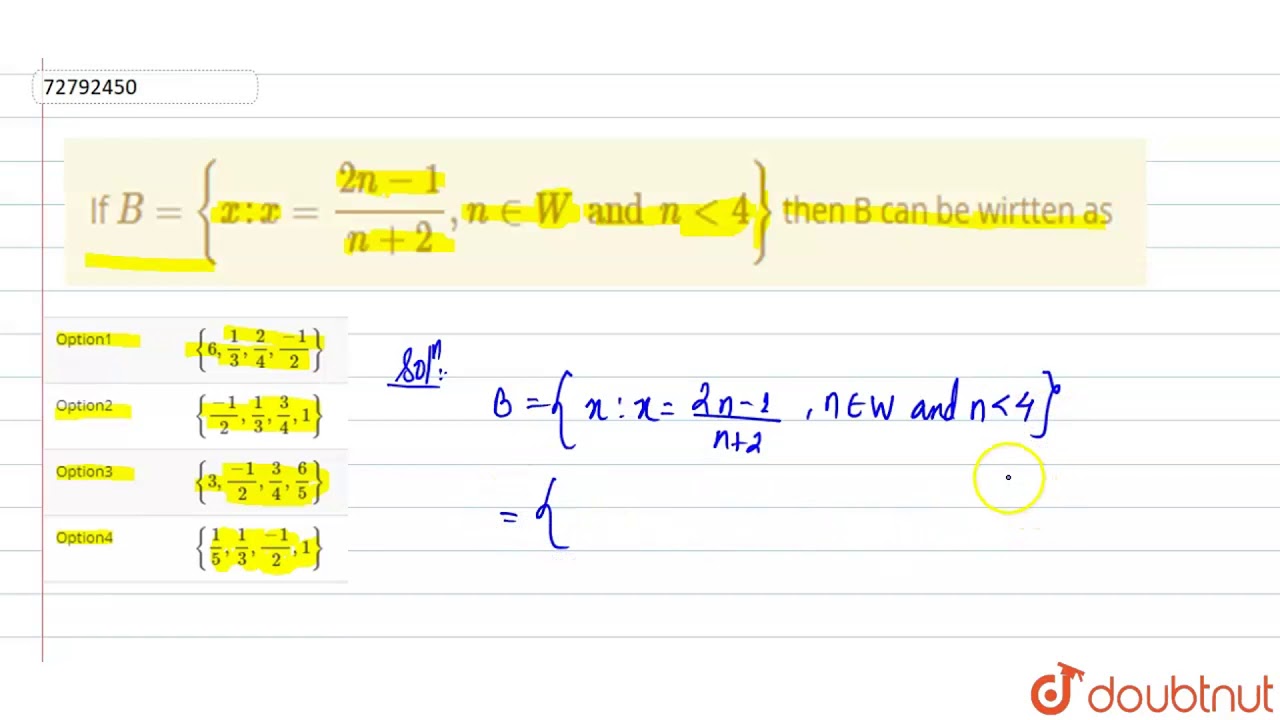 72792450
If B = {x : x = \frac{2n - 1}{n + 2}, n ∈ W and n < 4} then B can be wirtten as
Option1 {6, \frac{1}{3}, \frac{2}{4}, \frac{-1}{2}}
Option2 {\frac{-1}{2}, \frac{1}{3}, \frac{3}{4}, 1}
Option3 {3, \frac{-1}{2}, \frac{3}{4}, \frac{6}{5}}
Option4 {\frac{1}{5}, \frac{1}{3}, \frac{-1}{2}, 1}
Solⁿ:
B = {x : x = \frac{2n-1}{n+2}, n ∈ W and n < 4}
= {
doubtnut